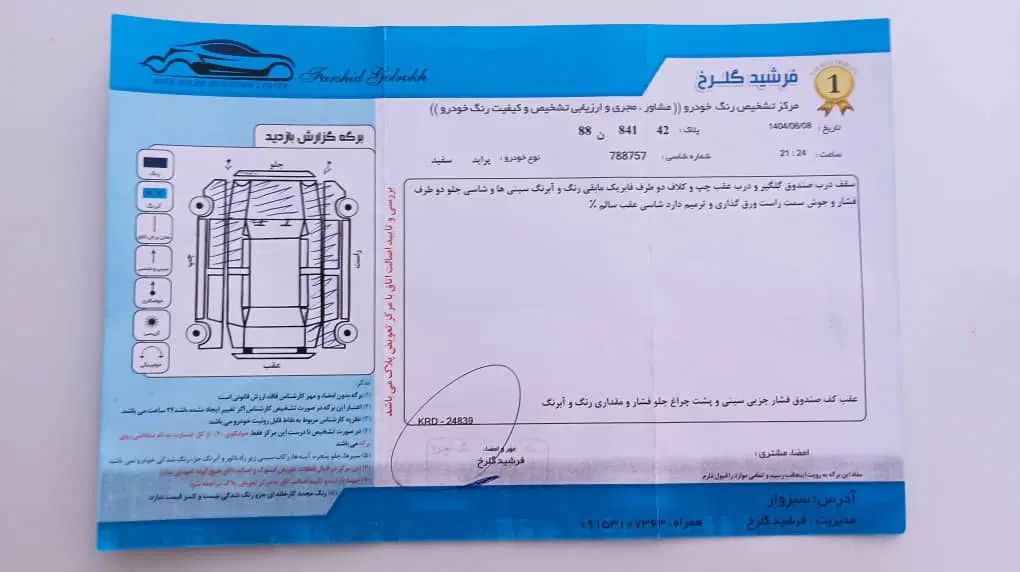 Farshid Golrokh
فرشید گلرخ
1
مرکز تشخیص رنگ خودرو (( مشاور ، مجری و ارزیابی تشخیص و کیفیت رنگ خودرو ))
تاریخ : 1404/06/08
پلاک : 42 841 ن 88
ساعت : 24 : 21
شماره شاسی : 788757
نوع خودرو : پراید سفید
سقف درب صندوق گلگیر و درب عقب چپ و کلاف دو طرف فابریک مابقی رنگ و آبرنگ سینی ها و شاسی جلو دو طرف
فشار و جوش سمت راست ورق گذاری و ترمیم دارد شاسی عقب سالم ٪
عقب کف صندوق فشار جزیی سینی و پشت چراغ جلو فشار و مقداری رنگ و آبرنگ
KRD - 24839
مهر و امضاء :
فرشید گلرخ
امضاء مشتری :
مفاد این برگه به رویت اینجانب رسید و تمامی موارد را قبول دارم
بررسی و تایید اصالت اتاق با مرکز تعویض پلاک می باشد
برگه گزارش بازدید
جلو
راست
چپ
عقب
رنگ
آبرنگ
تذکر :
۱) برگه بدون امضاء و مهر کارشناس فاقد ارزش قانونی است
۲) اعتبار این برگه در صورت تشخیص کارشناس اگر تغییر ایجاد نشده باشد ۲۴ ساعت می باشد
۳) نظریه کارشناس مربوط به نقاط قابل روئیت خودرو می باشد
برگه می باشد
آدرس: سبزوار
مدیریت : فرشید گلرخ
همراه: ۰۹۱۵۳۱۰۷۳۶۳